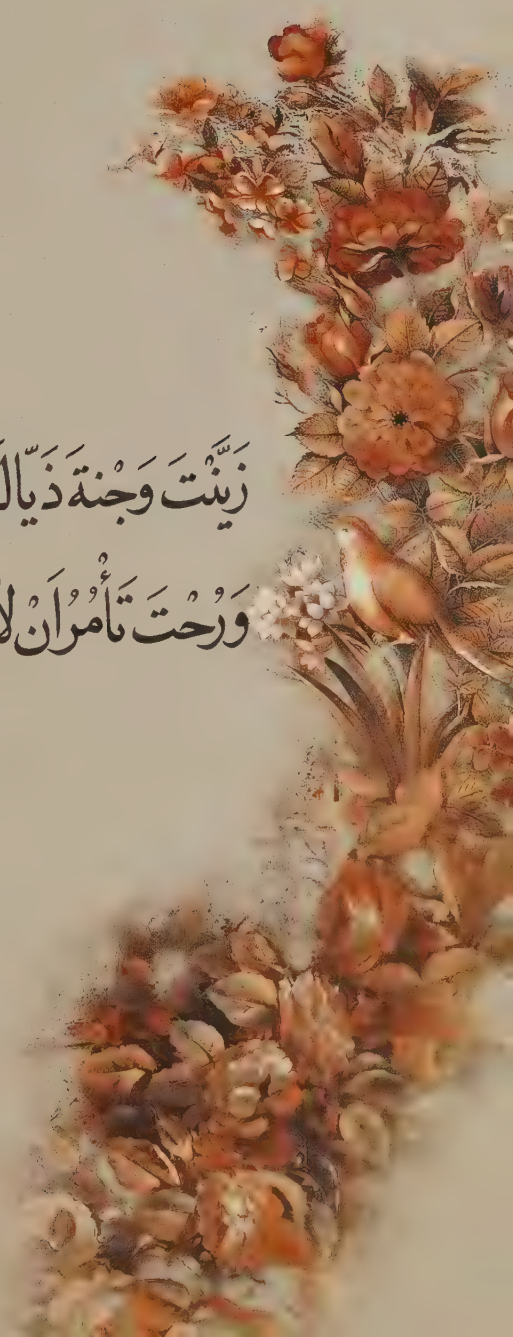 زَيَّنْتَ وَجْنةَ ذَيّالَ
وَرُحْتَ تَأْمُرُ اَنْ لا